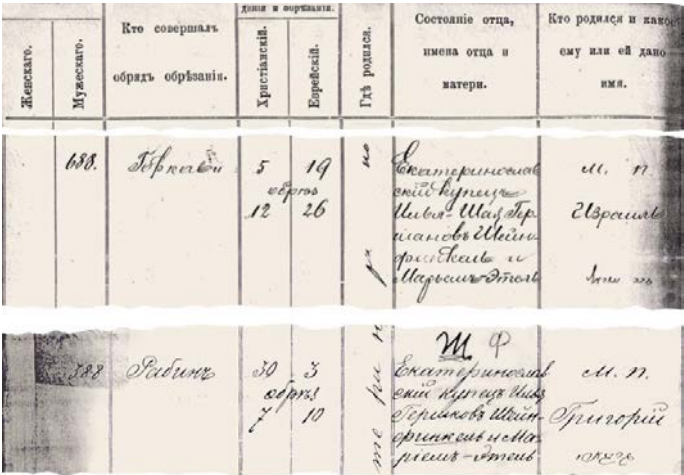 Женскаго.
Мужескаго.
Кто совершалъ
обрядъ обрѣзанія.
денія и обрѣзанія.
Христіанскій.
Еврейскій.
Гдѣ родился.
Состояніе отца,
имена отца и
матери.
Кто родился и какое
ему или ей дано
имя.
688.
5
19
обрѣз
12
26
Екатеринослав
скій купецъ
Илья-Шая Гер
шановъ Шейн-
финкель и
Марьемъ-Этель
м. п.
Израиль
388
Рабинъ
30
3
обрѣз
7
10
Ш Ф
Екатеринослав
скій купецъ Илья
Гершковъ Шейн-
финкель и Ма-
ріемъ-Этель
м. п.
Григорій